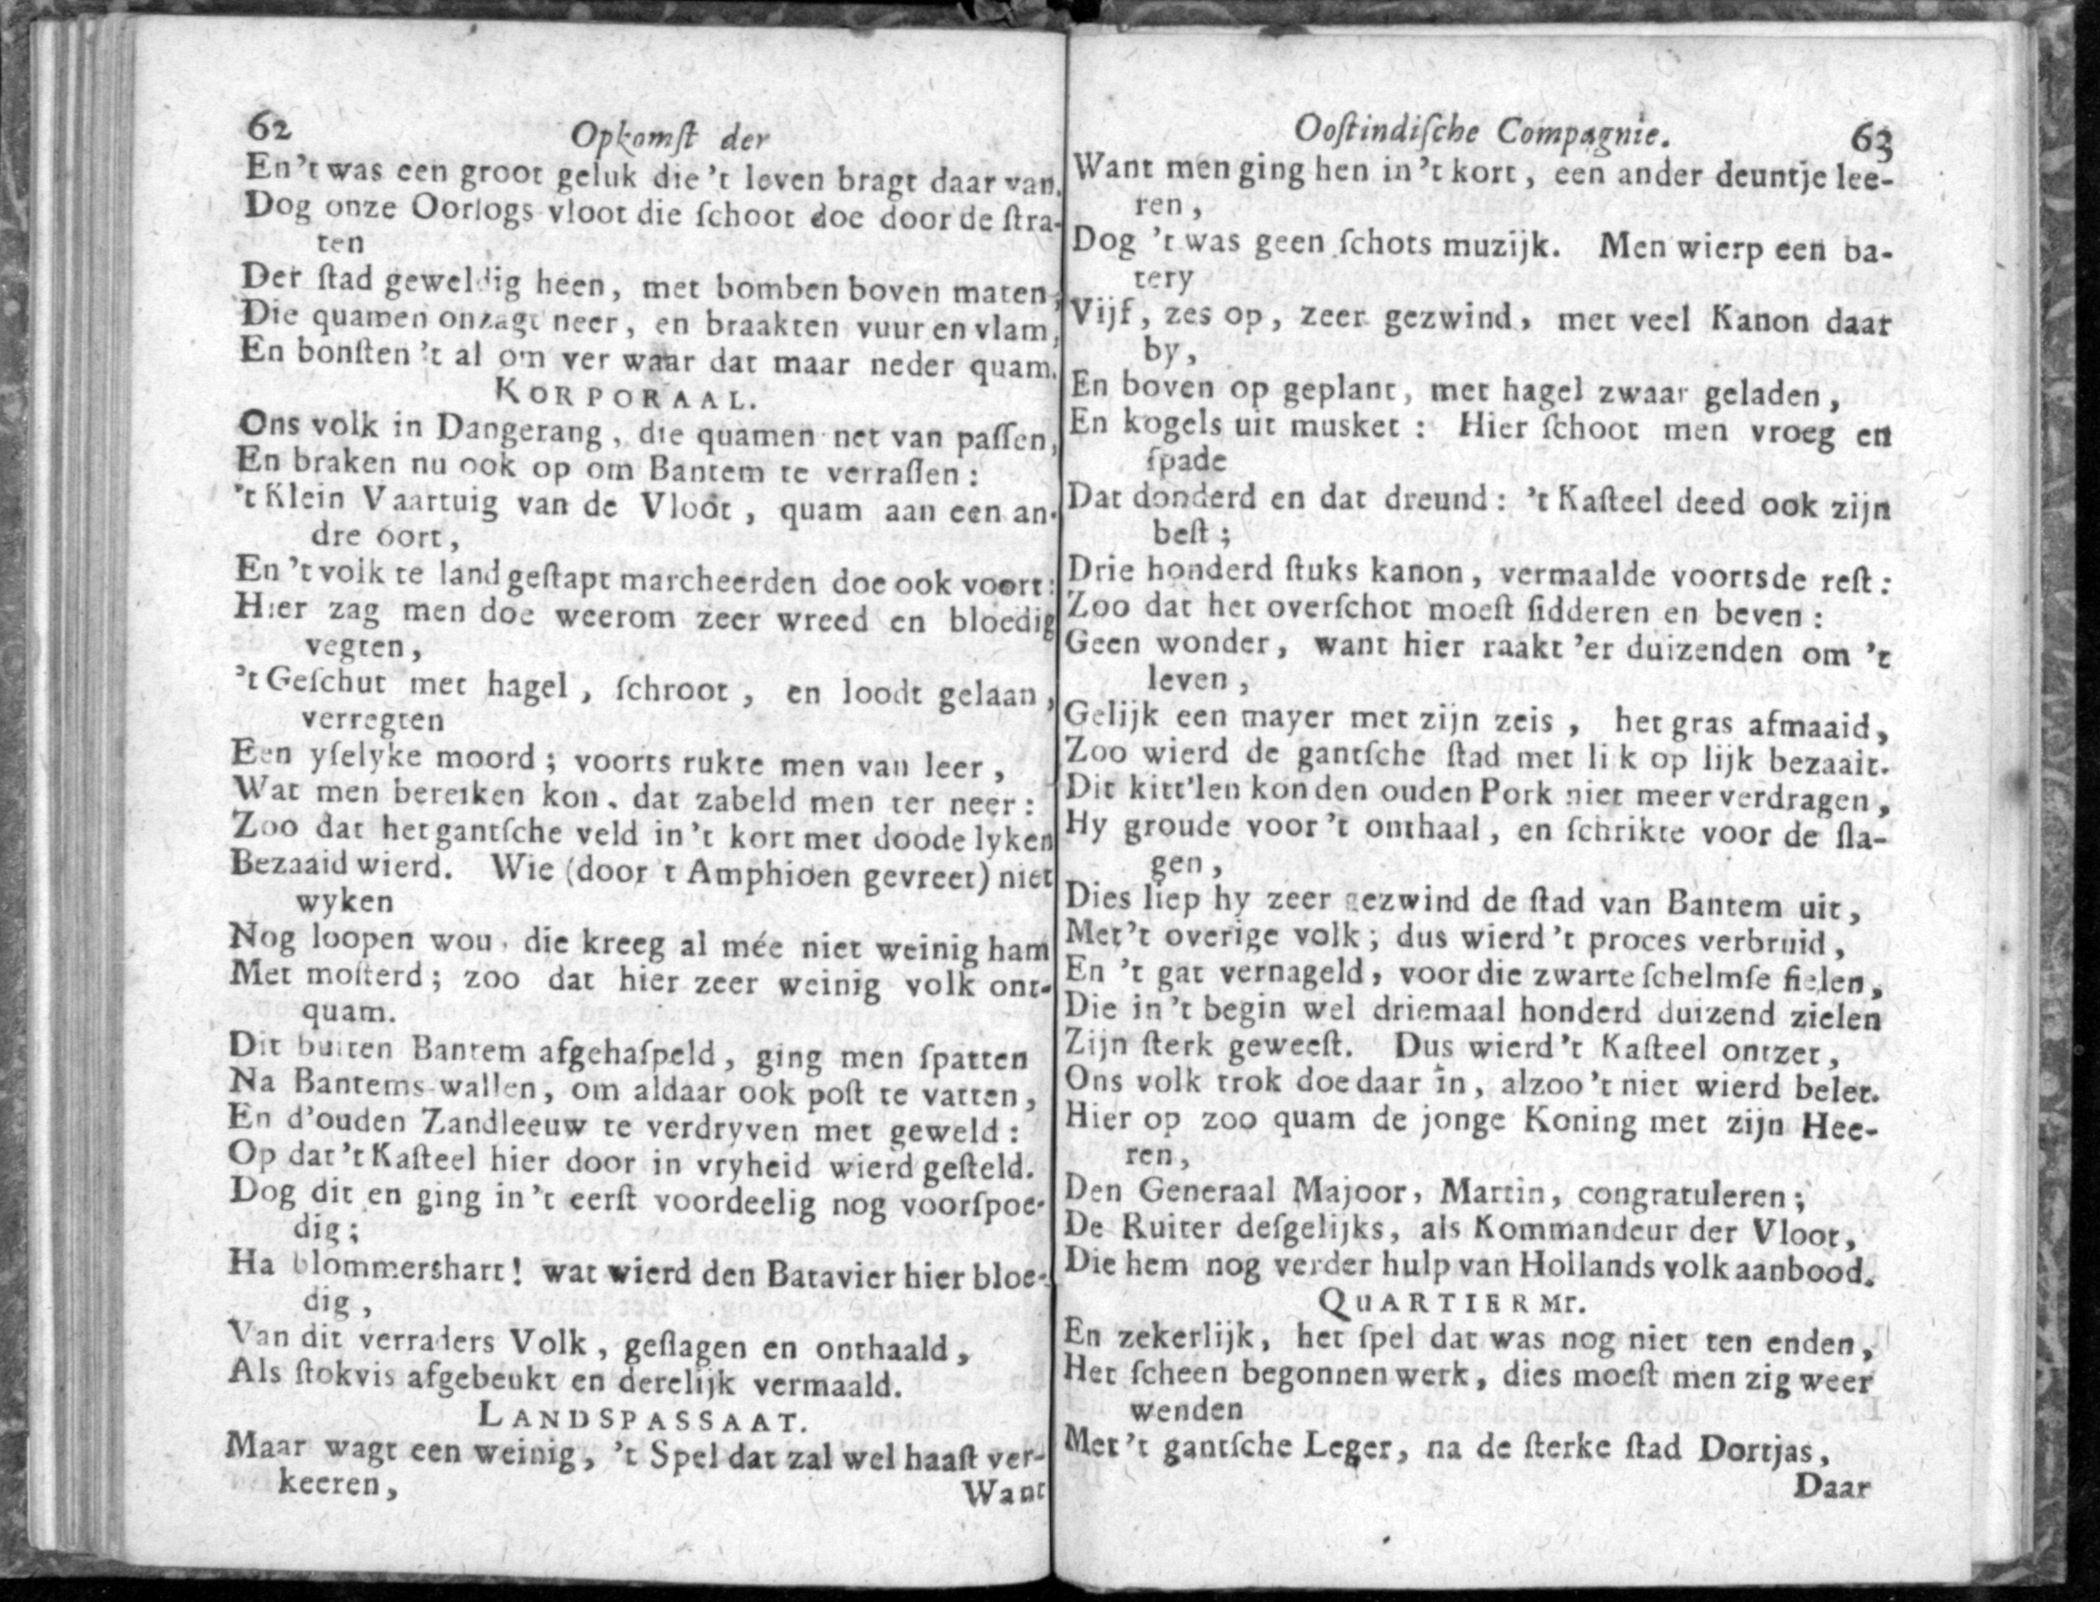 62
Opkomſt der
En 't was een groot geluk die 't leven bragt daar van.
Dog onze Oorlogs-vloot die ſchoot doe door de ſtra-
ten
Der ſtad geweldig heen, met bomben boven maten,
Die quamen onzagt neer, en braakten vuur en vlam,
En bonſten 't al om ver waar dat maar neder quam.
KORPORAAL.
Ons volk in Dangerang, die quamen net van paſſen,
En braken nu ook op om Bantem te verraſſen:
't Klein Vaartuig van de Vloot, quam aan een an-
dre oort,
En 't volk te land geſtapt marcheerden doe ook voort:
Hier zag men doe weerom zeer wreed en bloedig
vegten,
't Geſchut met hagel, ſchroot, en loodt gelaan,
verregten
Een yſelyke moord; voorts rukte men van leer,
Wat men bereiken kon, dat zabeld men ter neer:
Zoo dat het gantſche veld in 't kort met doode lyken
Bezaaid wierd. Wie (door 't Amphioen gevreet) niet
wyken
Nog loopen wou, die kreeg al mée niet weinig ham
Met moſterd; zoo dat hier zeer weinig volk ont-
quam.
Dit buiten Bantem afgehaſpeld, ging men ſpatten
Na Bantems-wallen, om aldaar ook poſt te vatten,
En d'ouden Zandleeuw te verdryven met geweld:
Op dat 't Kaſteel hier door in vryheid wierd geſteld.
Dog dit en ging in 't eerſt voordeelig nog voorſpoe-
dig;
Ha blommershart! wat wierd den Batavier hier bloe-
dig,
Van dit verraders Volk, geſlagen en onthaald,
Als ſtokvis afgebeukt en derelijk vermaald.
LANDSPASSAAT.
Maar wagt een weinig, 't Spel dat zal wel haaſt ver-
keeren,
Want
Ooſtindiſche Compagnie.
63
Want men ging hen in 't kort, een ander deuntje lee-
ren,
Dog 't was geen ſchots muzijk. Men wierp een ba-
tery
Vijf, zes op, zeer gezwind, met veel Kanon daar
by,
En boven op geplant, met hagel zwaar geladen,
En kogels uit musket: Hier ſchoot men vroeg en
ſpade
Dat donderd en dat dreund: 't Kaſteel deed ook zijn
beſt;
Drie honderd ſtuks kanon, vermaalde voorts de reſt:
Zoo dat het overſchot moeſt ſidderen en beven:
Geen wonder, want hier raakt 'er duizenden om 't
leven,
Gelijk een mayer met zijn zeis, het gras afmaaid,
Zoo wierd de gantſche ſtad met lijk op lijk bezaait.
Dit kitt'len kon den ouden Pork niet meer verdragen,
Hy groude voor 't onthaal, en ſchrikte voor de ſla-
gen,
Dies liep hy zeer gezwind de ſtad van Bantem uit,
Met 't overige volk; dus wierd 't proces verbruid,
En 't gat vernageld, voor die zwarte ſchelmſe fielen,
Die in 't begin wel driemaal honderd duizend zielen
Zijn ſterk geweeſt. Dus wierd 't Kaſteel ontzet,
Ons volk trok doe daar in, alzoo 't niet wierd belet.
Hier op zoo quam de jonge Koning met zijn Hee-
ren,
Den Generaal Majoor, Martin, congratuleren;
De Ruiter deſgelijks, als Kommandeur der Vloot,
Die hem nog verder hulp van Hollands volk aanbood.
QUARTIERMr.
En zekerlijk, het ſpel dat was nog niet ten enden,
Het ſcheen begonnen werk, dies moeſt men zig weer
wenden
Met 't gantſche Leger, na de ſterke ſtad Dortjas,
Daar